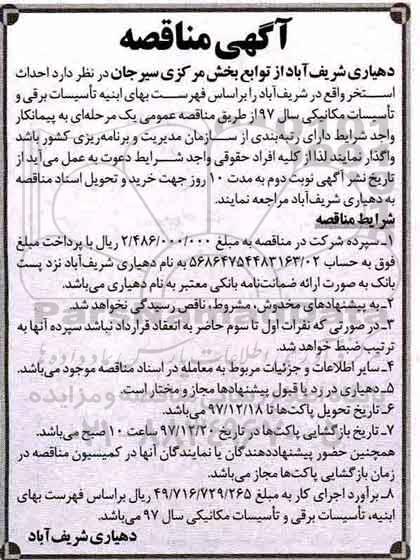 آگهی مناقصه
دهیاری شریف‌آباد از توابع بخش مرکزی سیرجان در نظر دارد احداث
استخر واقع در شریف‌آباد را براساس فهرست بهای ابنیه تأسیسات برقی و
تأسیسات مکانیکی سال ۹۷ از طریق مناقصه عمومی یک مرحله‌ای به پیمانکار
واجد شرایط دارای رتبه‌بندی از سازمان مدیریت و برنامه‌ریزی کشور باشد
واگذار نمایند لذا از کلیه افراد حقوقی واجد شرایط دعوت به عمل می‌آید از
تاریخ نشر آگهی نوبت دوم به مدت ۱۰ روز جهت خرید و تحویل اسناد مناقصه
به دهیاری شریف‌آباد مراجعه نمایند.
شرایط مناقصه
۱ـ سپرده شرکت در مناقصه به مبلغ ۲/۴۸۶/۰۰۰/۰۰۰ ریال با پرداخت مبلغ
فوق به حساب ۵۶۸۶۴۷۵۴۴۸۳۱۶۳/۰۲ به نام دهیاری شریف‌آباد نزد پست
بانک به صورت ارائه ضمانت‌نامه بانکی معتبر به نام دهیاری می‌باشد.
۲ـ به پیشنهادهای مخدوش، مشروط، ناقص رسیدگی نخواهد شد.
۳ـ در صورتی که نفرات اول تا سوم حاضر به انعقاد قرارداد نباشد سپرده آنها به
ترتیب ضبط خواهد شد.
۴ـ سایر اطلاعات و جزئیات مربوط به معامله در اسناد مناقصه موجود می‌باشد.
۵ـ دهیاری در رد یا قبول پیشنهادها مجاز و مختار است.
۶ـ تاریخ تحویل پاکت‌ها تا ۹۷/۱۲/۱۸ می‌باشد.
۷ـ تاریخ بازگشایی پاکت‌ها در تاریخ ۹۷/۱۲/۲۰ ساعت ۱۰ صبح می‌باشد.
همچنین حضور پیشنهاددهندگان یا نمایندگان آنها در کمیسیون مناقصه در
زمان بازگشایی پاکت‌ها مجاز می‌باشد.
۸ـ برآورد اجرای کار به مبلغ ۴۹/۷۱۶/۷۲۹/۲۶۵ ریال براساس فهرست بهای
ابنیه، تأسیسات برقی و تأسیسات مکانیکی سال ۹۷ می‌باشد.
دهیاری شریف‌آباد